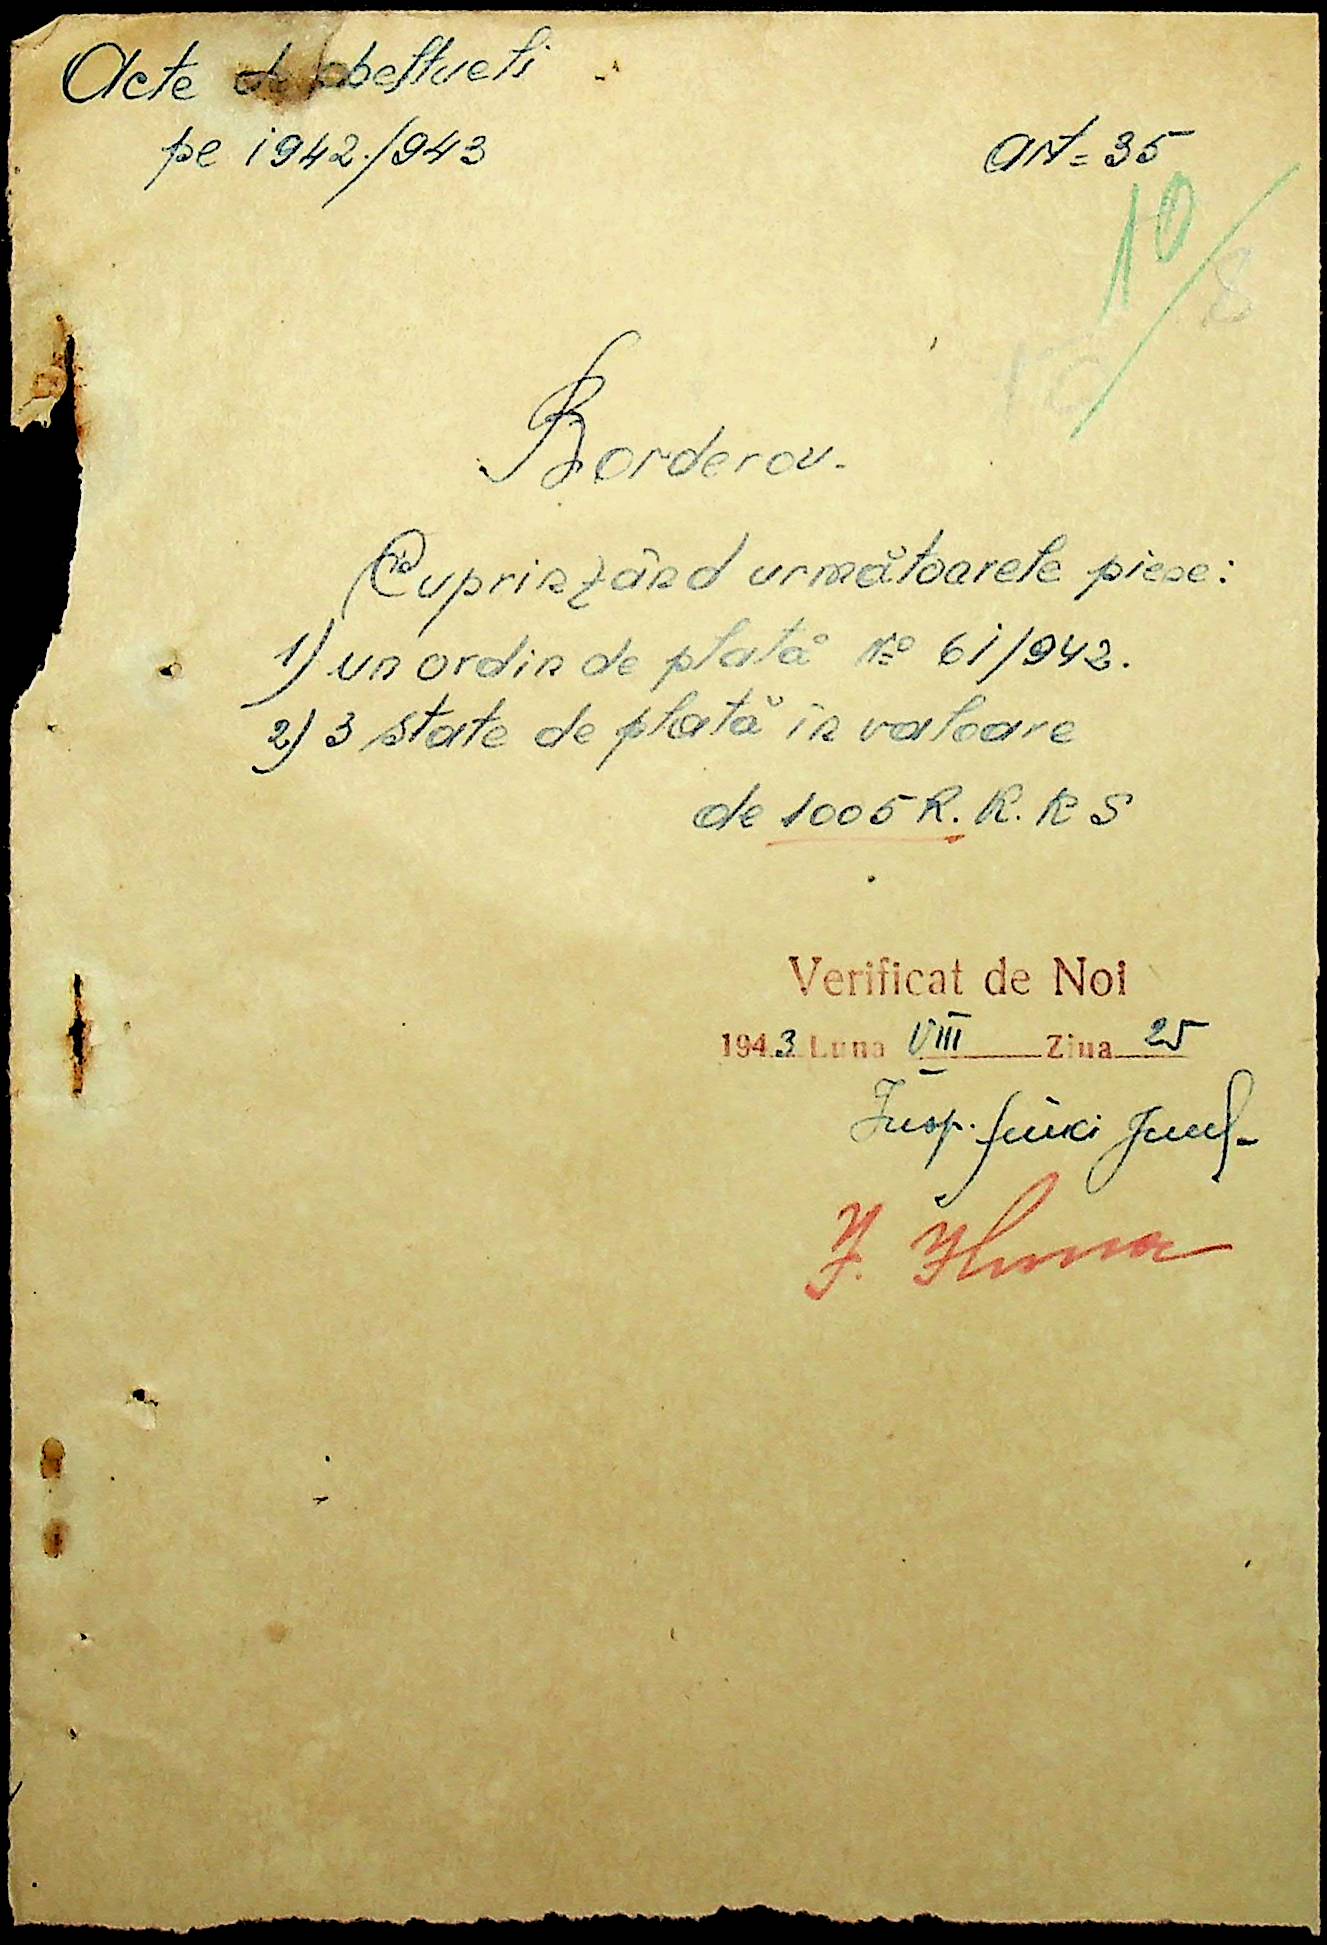 Acte de cheltueli
pe 1942./943
art = 35
10/8
Borderou.
Cuprinzând următoarele piese:
1) un ordin de plată No 61/942.
2) 3 state de plată în valoare
de 1005 R. K. K S
Verificat de Noi
1943 Luna VIII Ziua 25
Insp.